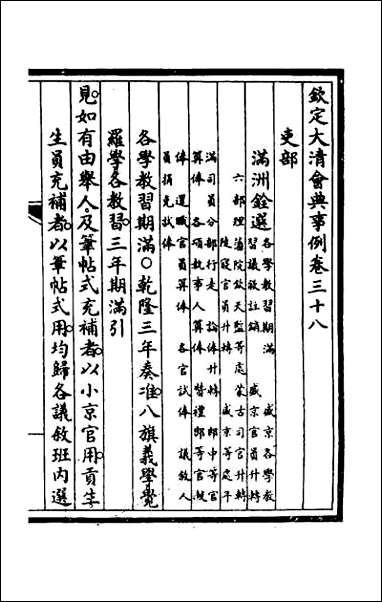 欽定大清會典事例卷三十八
吏部
滿洲銓選 各學教習期滿 盛京各學教
習議敘註銷 盛京官員升轉
六部理藩院欽天監等處蒙古司官升轉
陵寢官員升轉 盛京等處平
滿司員分部行走 論俸升轉 郎中等官
算俸 各項執事人算俸 贊禮郎等官候
俸 還職官員算俸 各官試俸 議敘人
員捐免試俸
各學教習期滿○乾隆三年奏准八旗義學覺
羅學各教習三年期滿引
見如有由舉人及筆帖式充補者以小京官用貢生
生員充補者以筆帖式用均歸各議敘班內選